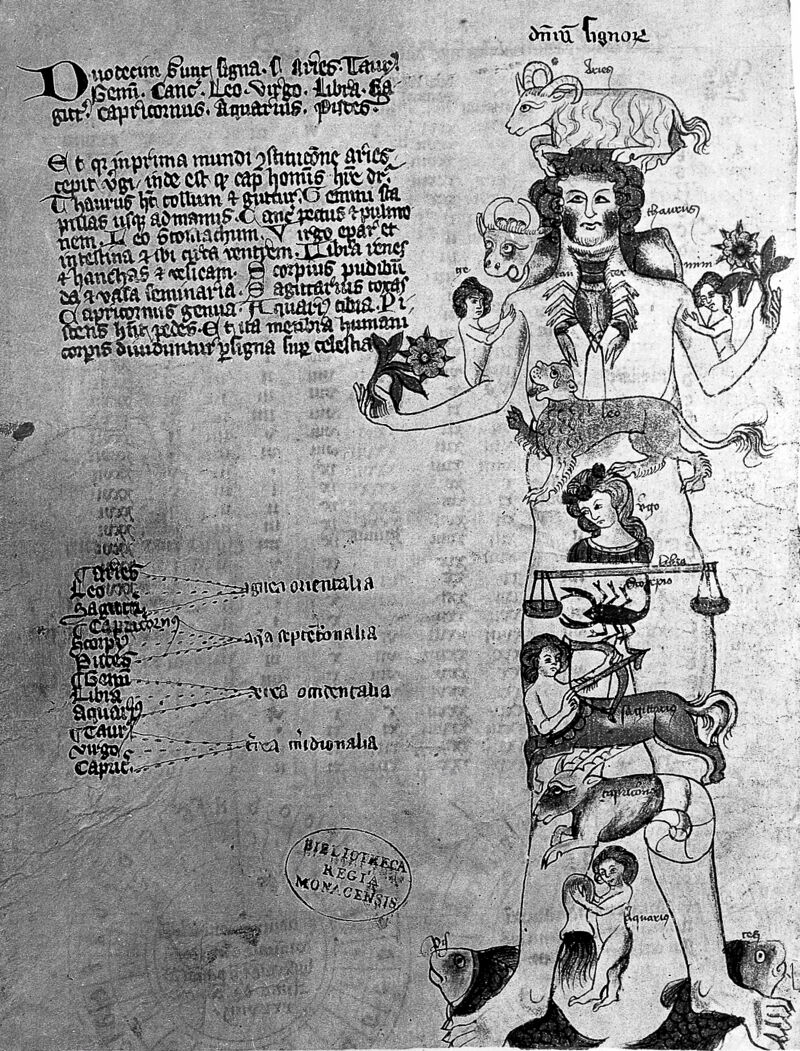 Duodecim sunt signa. s. Aries. Taur9.
Gemi. Canc. Leo. Virgo. Libra. Sa
gitt9. Capricornus. Aquarius. Pisces.
Et qr in prima mundi 9stitucõne aries
cepit vgi. inde est qr cap hominis hre dr.
Thaurus hr collum & guttur. Gemini sca
pulas usqz ad manus. Canc pectus & pulmo
nem. Leo stomachum. Virgo epar et
intestina & ibi circa ventrem. Libra renes
& hanchas & vesicam. Scorpius pudibun
da & vasa seminaria. Sagittarius coxas
Capricornus genua. Aquari9 tibia. Pi
scens hnt pedes. Et ita membra humani
corporis diuiduntur per signa super celestia
Aries
Leo
Sagitta
ignea orientalia
Capricornus
Scorpi9
Pisces
aqa septentonalia
Gemi
Libra
Aquari9
aerea occidentalia
Taur9
Virgo
Capric
trea midionalia
dnium signor
Aries
thaurus
ge
mini
can
cer
leo
virgo
libra
scorpio
sagittarius
capricorn9
aquarius
pis
ces
BIBLIOTHECA
REGIA
MONACENSIS